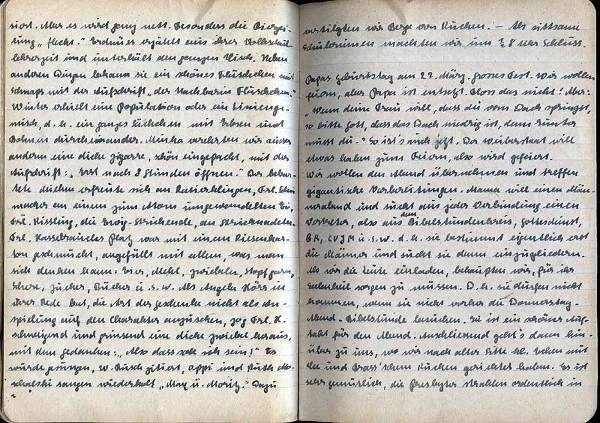 siert. Aber es wird ganz nett. Besonders die Bierzei-
tung „fleckt.“ Erdmute erzählt aus ihrer Volksschul-
lehrerzeit und unterhält den ganzen Tisch. Neben
anderen Dingen bekam sie ein schönes Fläschchen mit
Schnaps mit der Aufschrift „der Nachbarin Fläschchen.“
Winter erhielt eine Population oder ein Liniengemisch,
d. h. ein ganzes Säckchen mit Erbsen und
Bohnen durcheinander. Mischa verehrten wir unter
anderem eine dicke Zigarre, schön eingepackt, mit der
Aufschrift: „Erst nach 2 Stunden öffnen.“
dicken erfreute sich an
macher an einem zum Atom umgewandelten
Frl. Kissling, die Ewig-Strickende, an Stricknadeln.
Frl. Platz war mit einem Riesenkarton
geschmückt, angefüllt mit allem, was man
sich denken kann: Eier, Mehl, Zwiebeln, Stopfgarn,
Schere, Zucker, Bücher u. s. w. Als Angela Körs in
ihrer Rede bat, die Art der Geschenke nicht als Anspielung
auf den Charakter anzusehen, zog Frl. K.
schweigend und grinsend eine dicke Zwiebel heraus,
mit dem Gedanken: „Also das soll ich sein!“ Es
wurde gesungen, W. Busch zitiert, Appi und Ruth
sangen wiederholt „Max u. Moritz.“ Dazu
vertilgten wir Berge von Kuchen. – Als sittsame
Schülerinnen machten wir um ¾ 8 Uhr Schluss.
Papas Geburtstag am 27. März. Grosses Fest. Wir wollen
feiern, aber Papa ist entsetzt. Bloss das nicht! Aber:
„Wenn deine Frau will, dass du vom Dach springst,
so bitte Gott, dass das Dach niedrig ist, denn runter
musst du.“ So ist's auch jetzt. Der Weiberstaat will
etwas haben zum Feiern, also wird gefeiert.
Wir wollen den Mund übernehmen und treffen
gigantische Vorbereitungen. Mama will einen Männerabend
und sucht aus jeder Verbindung einen
Vertreter, also aus dem Bibelstundenkreis, Gottesdienst,
BK, CVJM u. s. w. d. h. sie bestimmt eigentlich erst
die Männer und sucht sie dann einzugliedern.
Als wir die Leute einladen, behaupten wir, für ihr
Seelenheil sorgen zu müssen. D. h. sie dürfen nicht
kommen, wenn sie nicht vorher die Donnerstag-
Abend-Bibelstunde besuchen. Es ist ein schöner Auftakt
für den Abend. Anschliessend geht's dann hinüber
zu uns, wo wir nach alter Sitte hl. Wecken mit
Tee und Kuchen gerichtet haben. Es ist
sehr gemütlich, die Presbyter strahlen ordentlich in